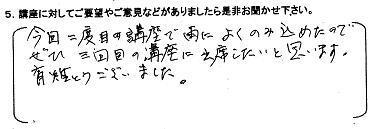 5. 講座に対してご要望やご意見などがありましたら是非お聞かせ下さい。
今回二度目の講座で更によくのみ込めたので
ぜひ三回目の講座に出席したいと思います。
有難とうございました。